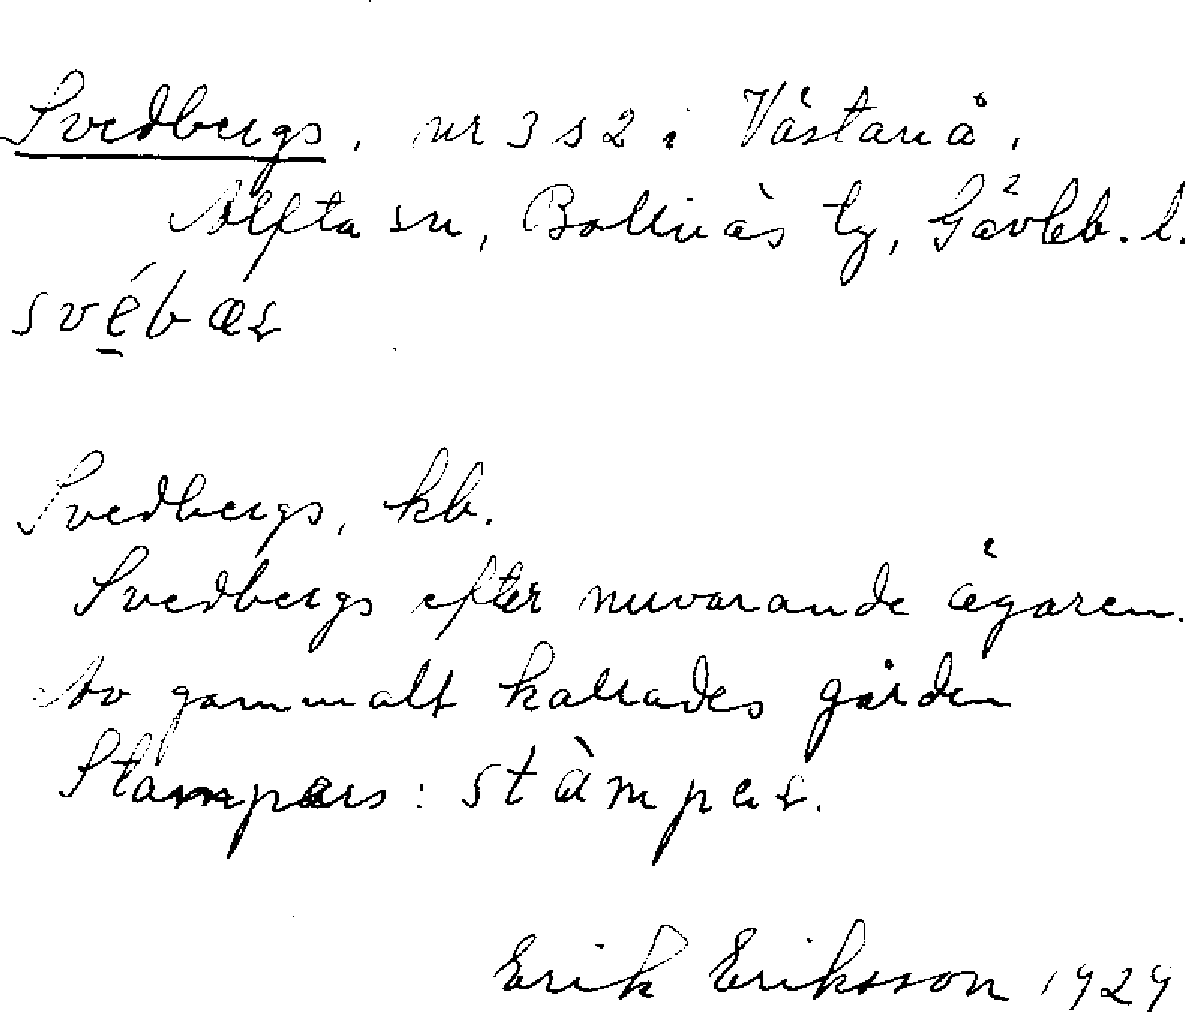 Svedbergs, nr 3 s 2 i Västanå,
Alfta sn, Bollnäs tg, Gävleb. l.
svébæs
Svedbergs, kb.
Svedbergs efter nuvarande ägaren.
Av gammalt kallades gården
Stampers: stàmpes.
Erik Eriksson 1929